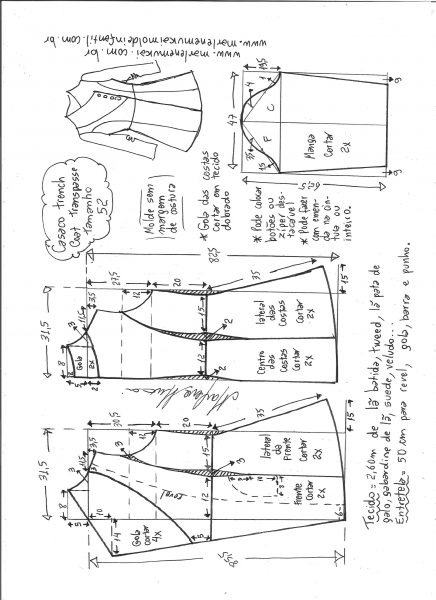 www.marlenemukaimoldeinfantil.com.br
www.marlenemukai.com.br
Casaco Trench
Coat Transpasse
Tamanho
52
Molde sem
margem
de costura
* Gola das costas
cortar em tecido
dobrado
* Pode colocar
botões ou
ziper des-
tacável
* Pode fazer
com emen
da na cin
tura ou
inteiro.
19,5
4
1
47
C
F
3,5
1,5
Manga
Cortar
2x
62,5
6
6
82,5
31,5
8
3
11,5
3,5
27,5
12
20
35
5
Gola
2x
2
15
12
2
2
lateral
das
Costas
Cortar
2x
Centro das
Costas
Cortar
2x
15
Marlene Mukai
31,5
8
3
11,5
3,5
30,5
12
20
35
5
10
3
3
revel
14
Gola
cortar
4x
15
12
5
3
lateral
da
Frente
Cortar
2x
Frente
Cortar
2x
6
15
Tecido = 2,60m de lã batida, tweed, lã pata de
galo, gabardine de lã, suede, veludo.
Entretela = 50 cm para revel, gola, barra e punho.